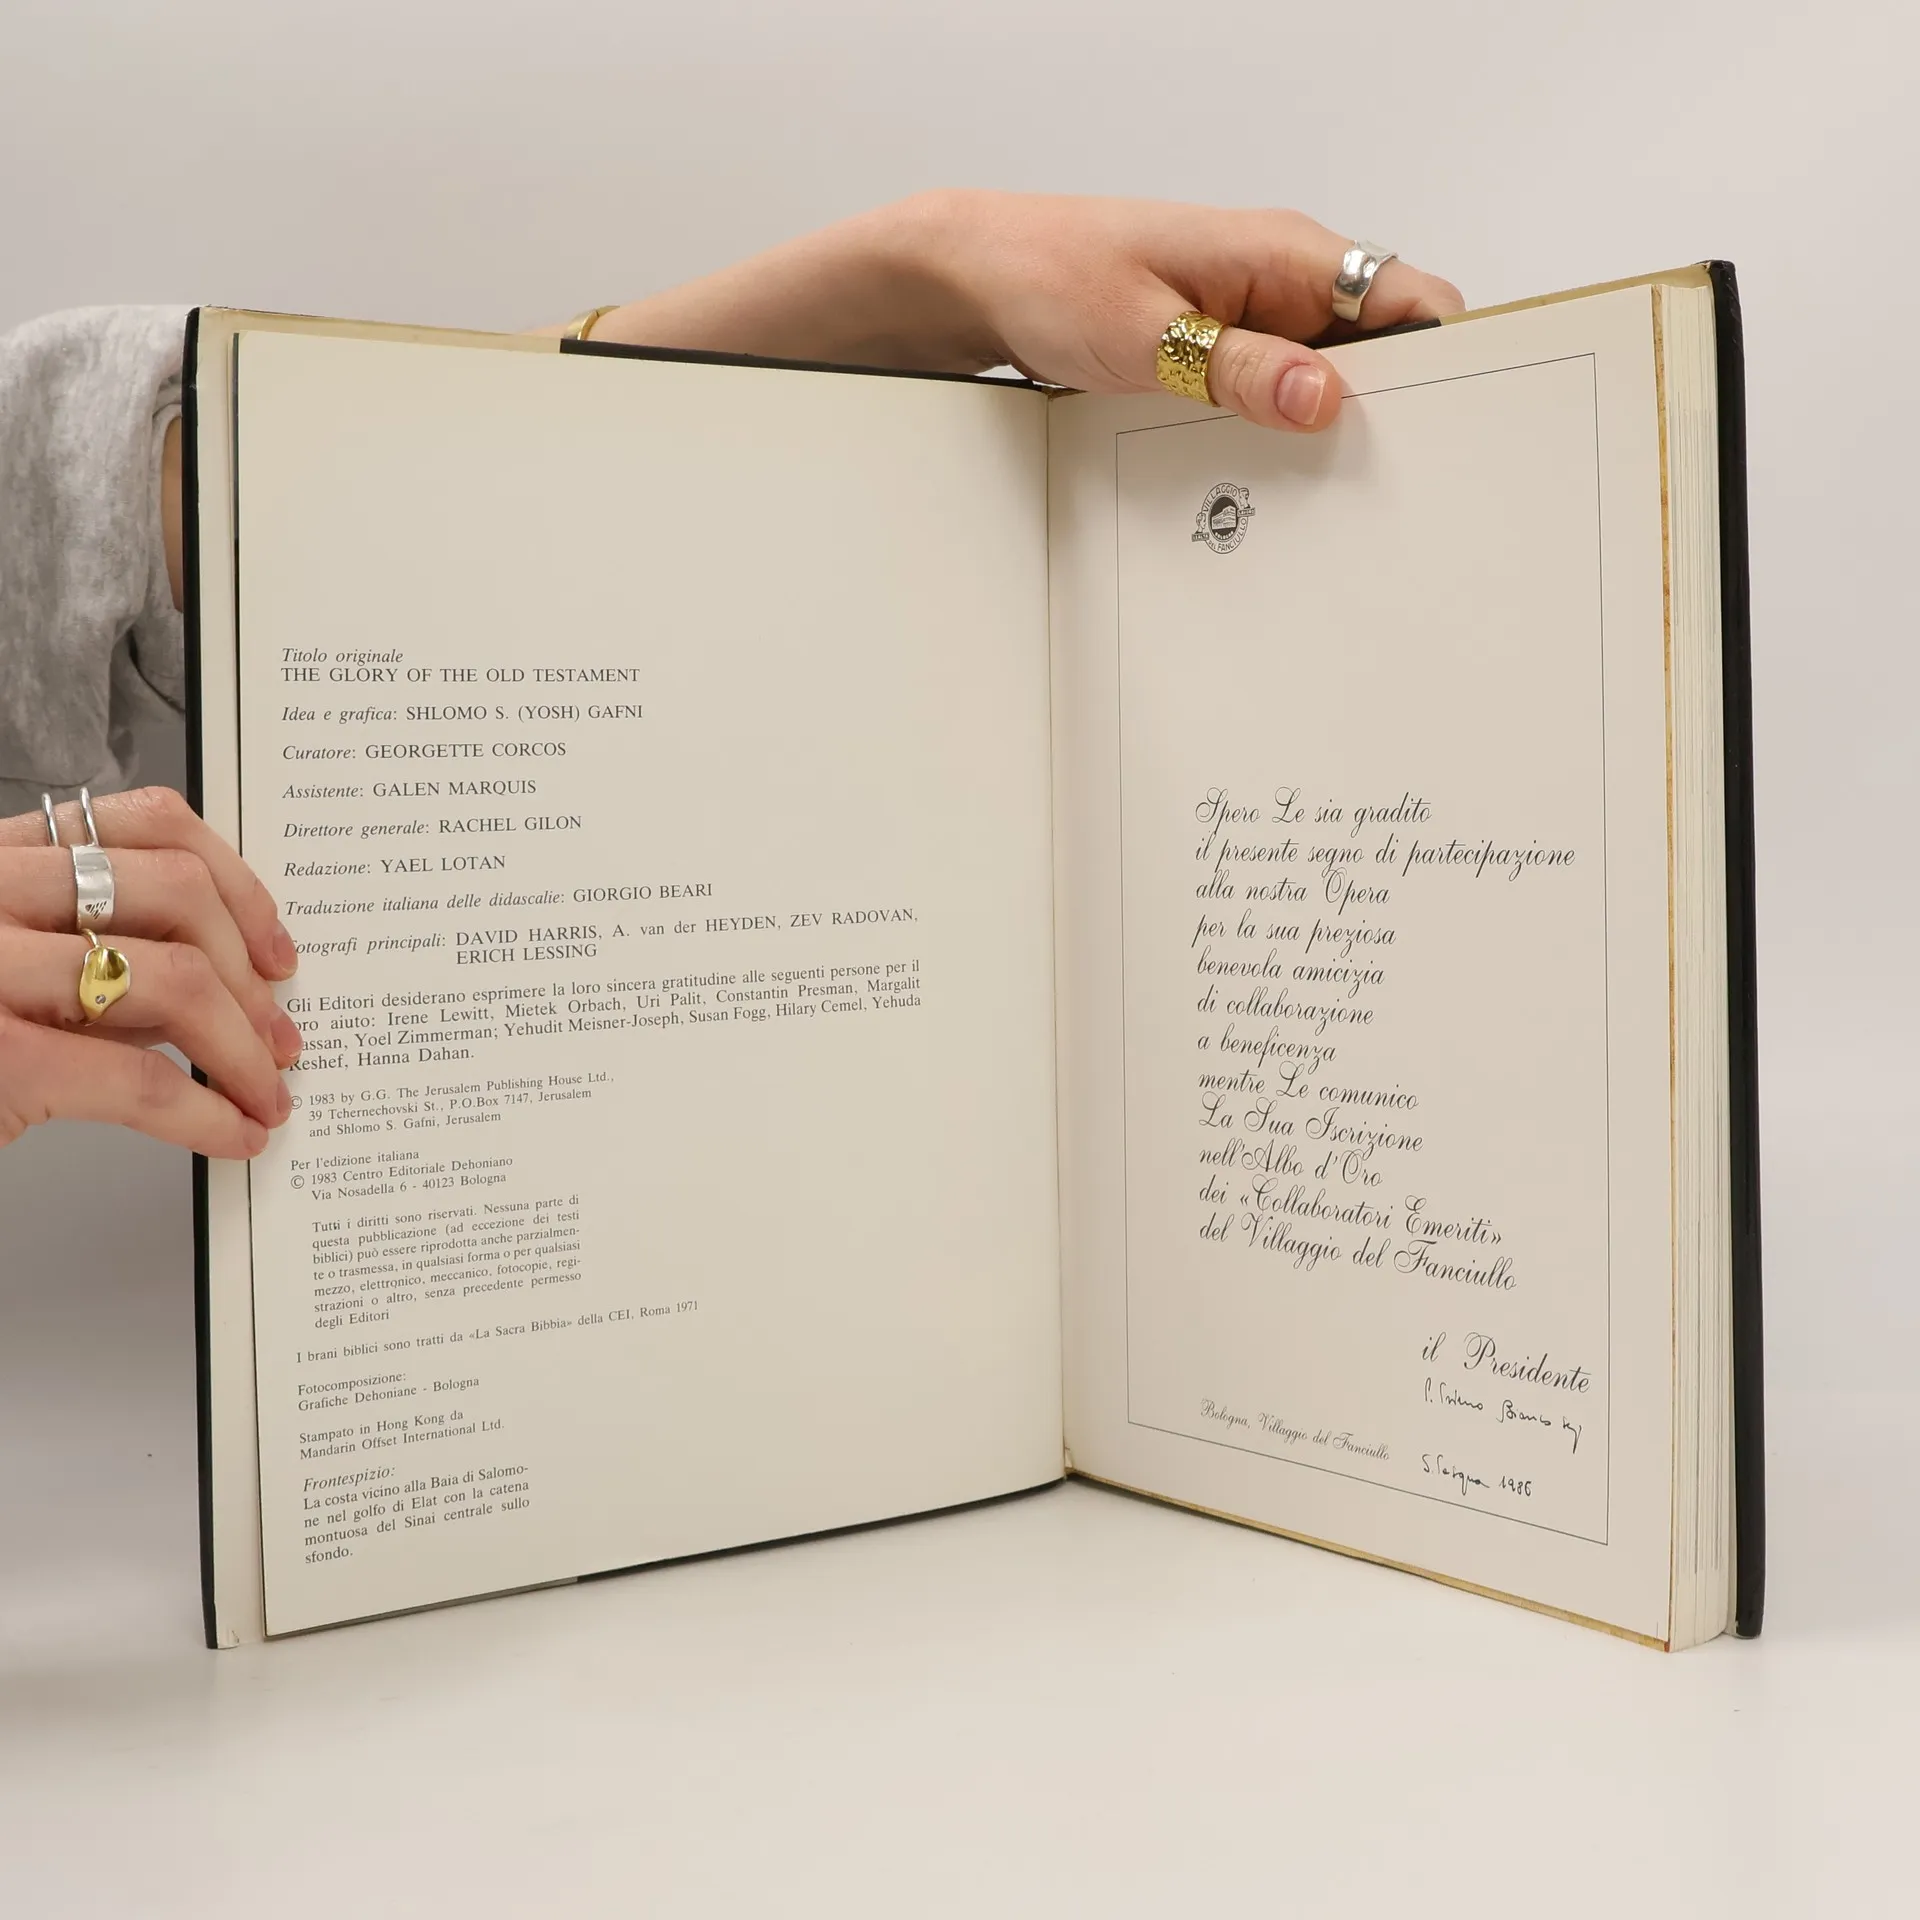 Titolo originale
THE GLORY OF THE OLD TESTAMENT
Idea e grafica: SHLOMO S. (YOSH) GAFNI
Curatore: GEORGETTE CORCOS
Assistente: GALEN MARQUIS
Direttore generale: RACHEL GILON
Redazione: YAEL LOTAN
Traduzione italiana delle didascalie: GIORGIO BEARI
otografi principali: DAVID HARRIS, A. van der HEYDEN, ZEV RADOVAN,
ERICH LESSING
Gli Editori desiderano esprimere la loro sincera gratitudine alle seguenti persone per il
oro aiuto: Irene Lewitt, Mietek Orbach, Uri Palit, Constantin Presman, Margalit
assan, Yoel Zimmerman; Yehudit Meisner-Joseph, Susan Fogg, Hilary Cemel, Yehuda
Reshef, Hanna Dahan.
© 1983 by G.G. The Jerusalem Publishing House Ltd.,
39 Tchernechovski St., P.O.Box 7147, Jerusalem
and Shlomo S. Gafni, Jerusalem
Per l'edizione italiana
© 1983 Centro Editoriale Dehoniano
Via Nosadella 6 - 40123 Bologna
Tutti i diritti sono riservati. Nessuna parte di
questa pubblicazione (ad eccezione dei testi
biblici) può essere riprodotta anche parzialmen-
te o trasmessa, in qualsiasi forma o per qualsiasi
mezzo, elettronico, meccanico, fotocopie, regi-
strazioni o altro, senza precedente permesso
degli Editori
I brani biblici sono tratti da «La Sacra Bibbia» della CEI, Roma 1971
Fotocomposizione:
Grafiche Dehoniane - Bologna
Stampato in Hong Kong da
Mandarin Offset International Ltd.
Frontespizio:
La costa vicino alla Baia di Salomo-
ne nel golfo di Elat con la catena
montuosa del Sinai centrale sullo
sfondo.
VILLAGGIO
DEL FANCIULLO
Spero Le sia gradito
il presente segno di partecipazione
alla nostra Opera
per la sua preziosa
benevola amicizia
di collaborazione
a beneficenza
mentre Le comunico
La Sua Iscrizione
nell'Albo d'Oro
dei «Collaboratori Emeriti»
del Villaggio del Fanciullo
il Presidente
Bianco
Bologna, Villaggio del Fanciullo
S. Pasqua 1986